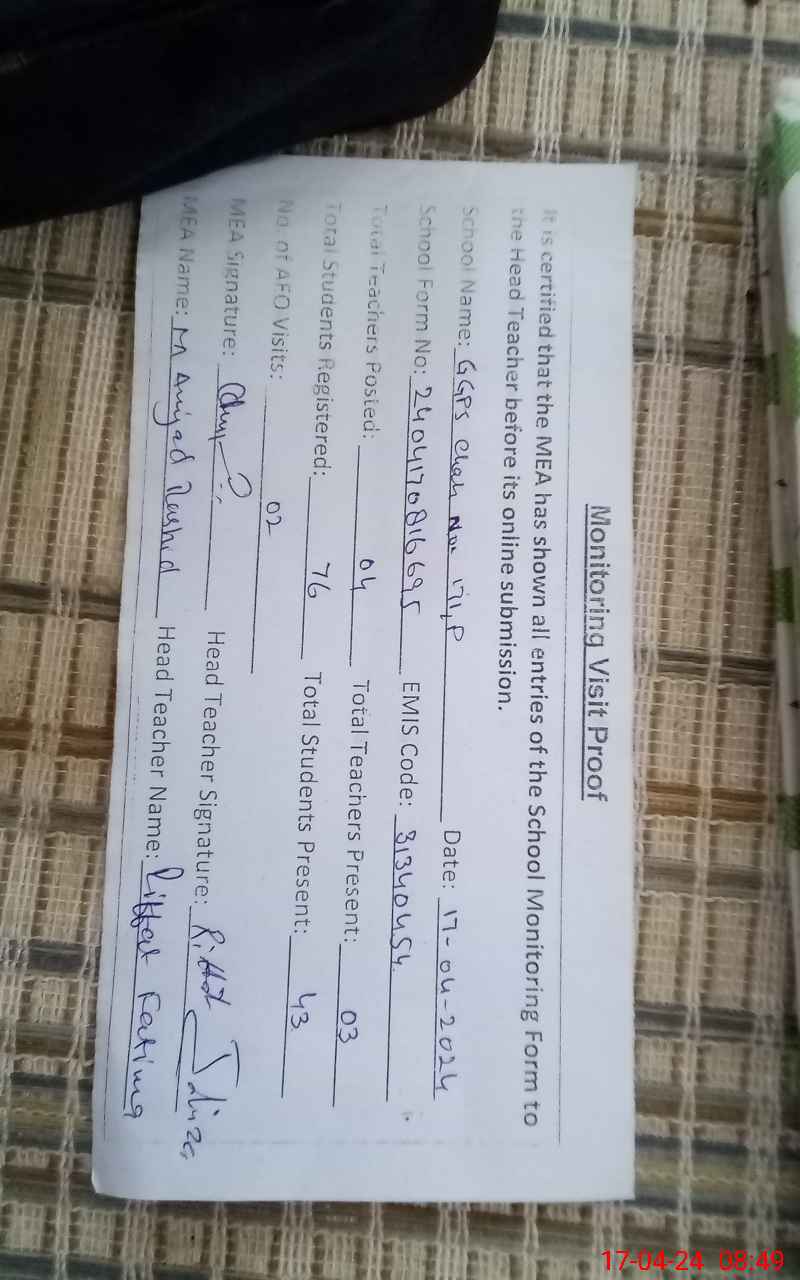 Monitoring Visit Proof
It is certified that the MEA has shown all entries of the School Monitoring Form to
the Head Teacher before its online submission.
School Name: GGPS Chak No. 171,P Date: 17-04-2024
School Form No: 2404170816695 EMIS Code: 31340454
Total Teachers Posted: 04 Total Teachers Present: 03
Total Students Registered: 76 Total Students Present: 43
No. of AEO Visits: 02
MEA Signature: Head Teacher Signature: Riffat
MEA Name: M Amjad Rashid Head Teacher Name: Riffat Fatima
17-04-24 08:49